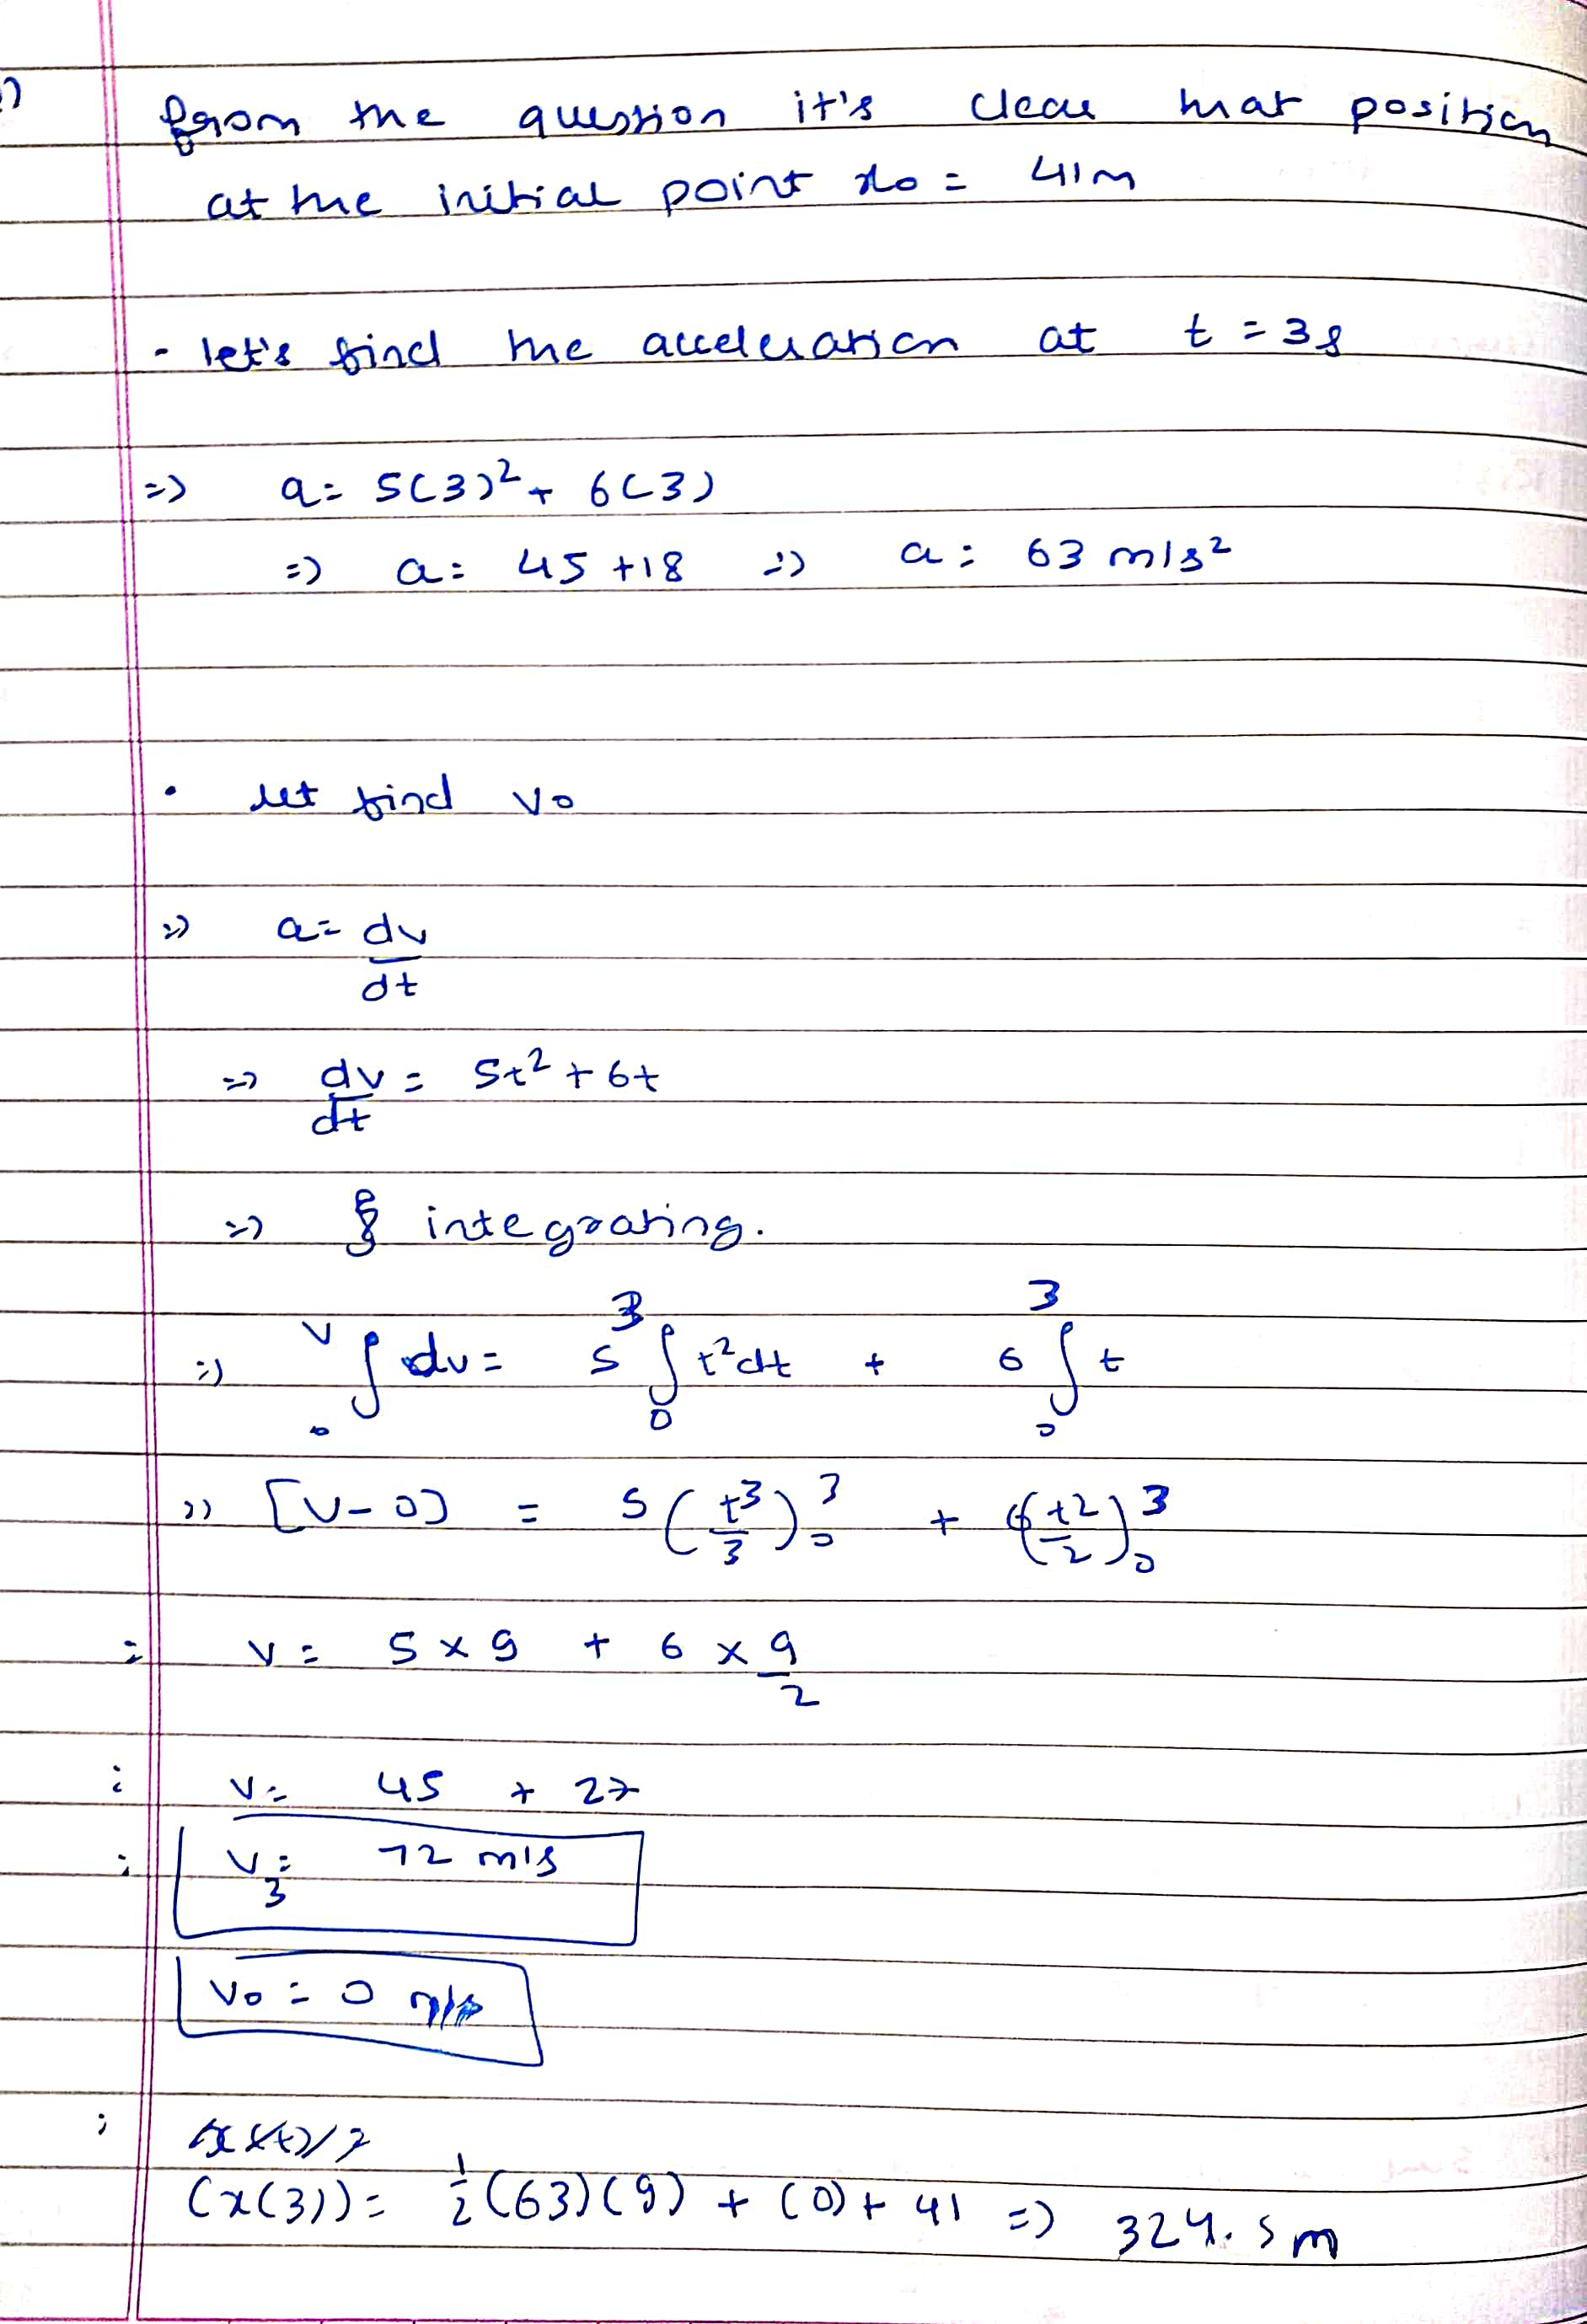 from the question it's clear that position
at the initial point x₀ = 41m
- let's find the acceleration at t = 3s
=> a = 5(3)² + 6(3)
=> a = 45 + 18 => a = 63 m/s²
• let find v₀
=> a = dv/dt
=> dv/dt = 5t² + 6t
=> integrating.
=> ∫₀ᵛ dv = 5 ∫₀³ t² dt + 6 ∫₀³ t
=> [v - 0] = 5 (t³/3)₀³ + 6(t²/2)₀³
= v = 5 x 9 + 6 x 9/2
: v = 45 + 27
: v₃ = 72 m/s
v₀ = 0 m/s
; (x(3)) = 1/2 (63)(9) + (0) + 41 => 324.5 m